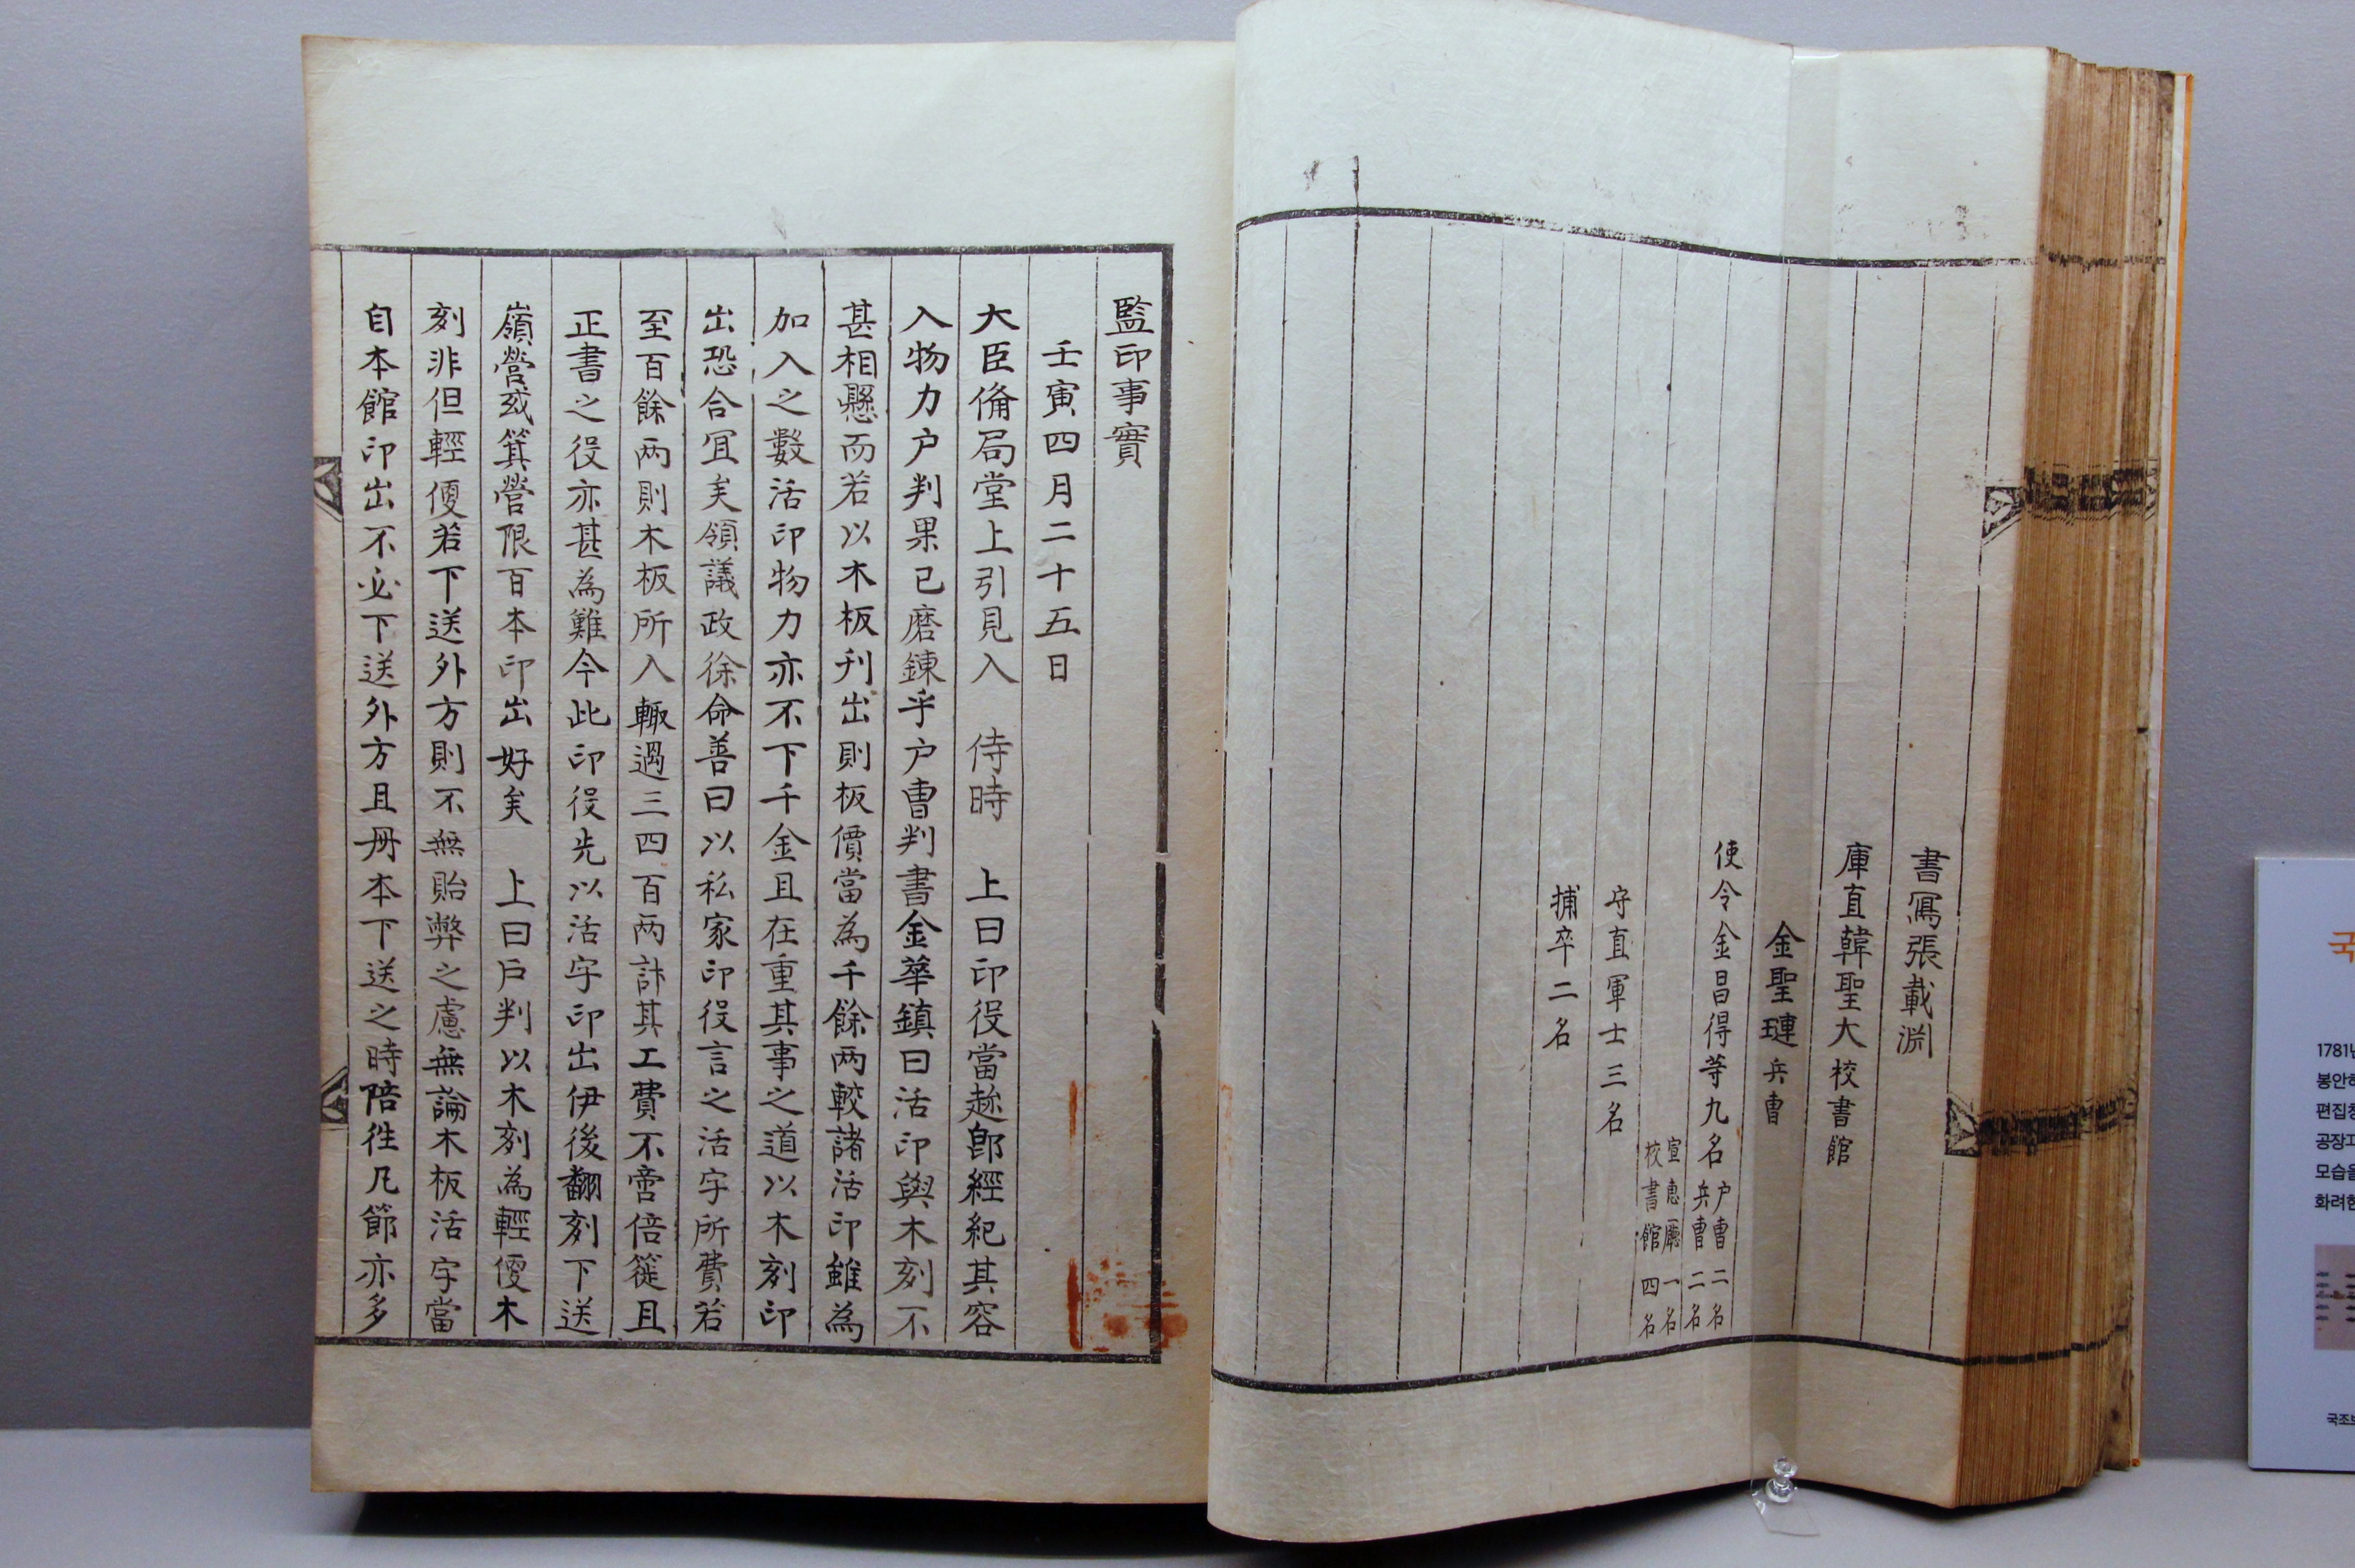 書寫張載淵
庫直韓聖大校書館
金聖璉兵曹
使令金昌得等九名户曹二名
兵曹二名
宣惠廳一名
校書館四名
守直軍士三名
捕卒二名
監印事實
壬寅四月二十五日
大臣俻局堂上引見入 侍時 上曰印役當趂卽經紀其容
入物力户判果已磨鍊乎户曹判書金華鎮曰活印與木刻不
甚相懸而若以木板刋出則板價當為千餘两較諸活印雖為
加入之數活印物力亦不下千金且在重其事之道以木刻印
出恐合冝矣領議政徐命善曰以私家印役言之活字所費若
至百餘两則木板所入輙過三四百两計其工費不啻倍簁且
正書之役亦甚為難今此印役先以活字印出伊後翻刻下送
嶺營或箕營限百本印出好矣 上曰户判以木刻為輕便木
刻非但輕便若下送外方則不無貽弊之慮無論木板活字當
自本館印出不必下送外方且冊本下送之時陪徃凡節亦多
국
1781년
봉안하
편집청
모습을
화려한
국조보